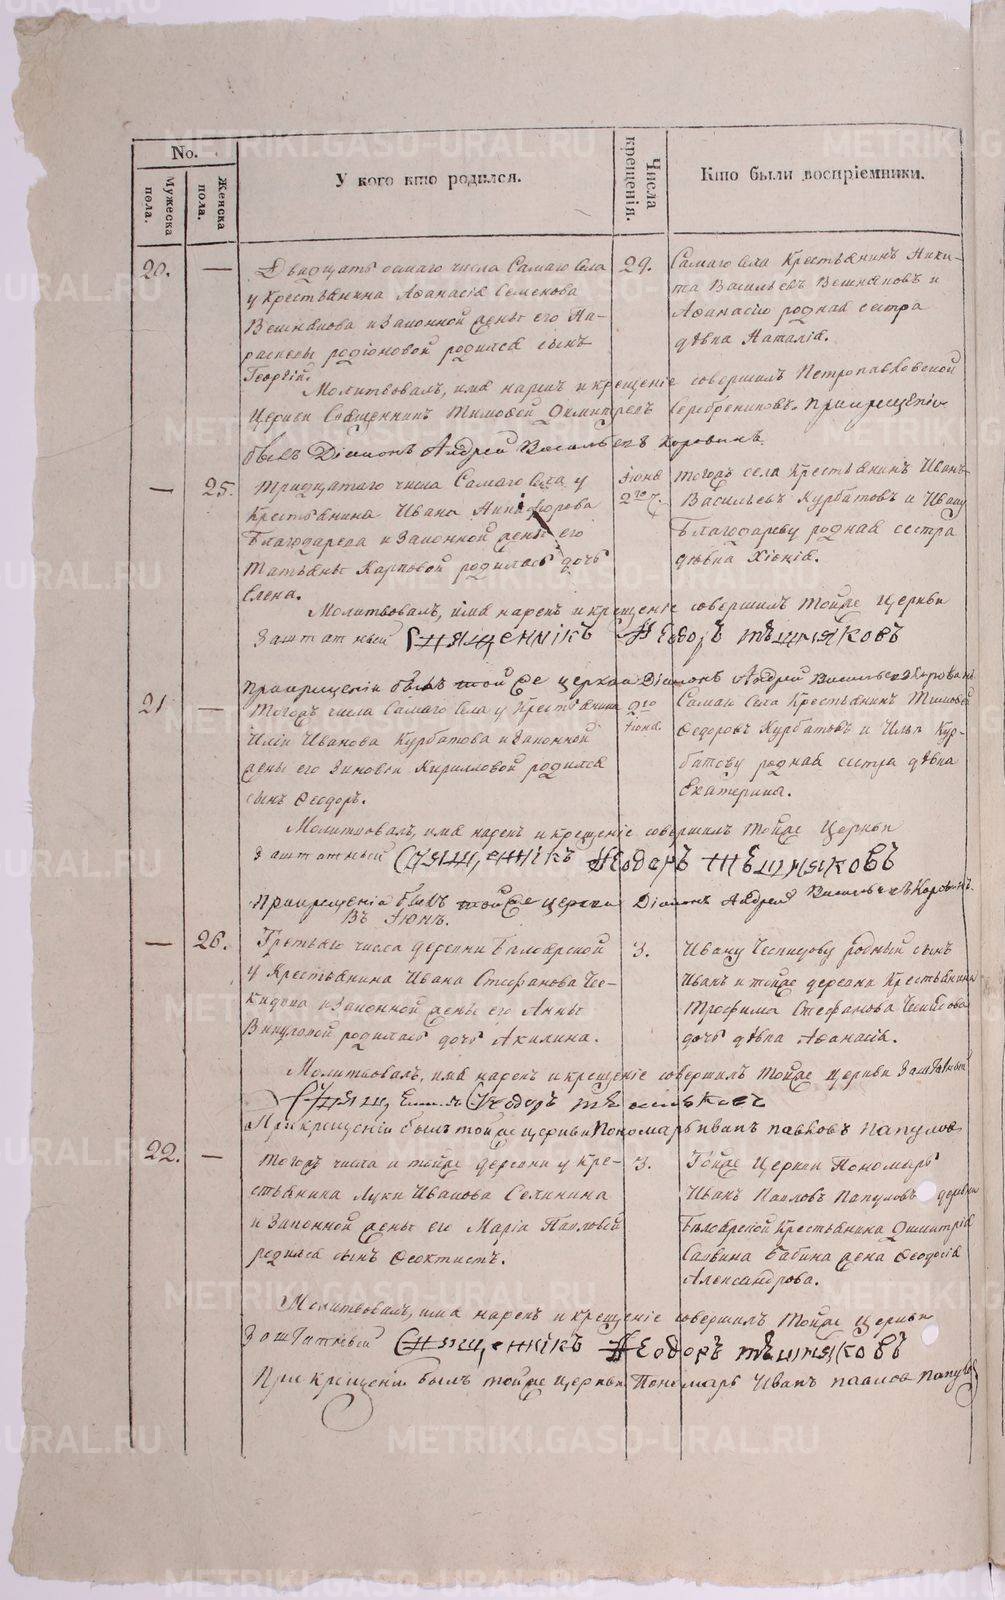 No.
Мужеска пола.
Женска пола.
У кого кто родился.
Числа крещенія.
Кто были воспріемники.
20. —
Двадцать осмаго числа Самаго села
у крестьянина Афанасія Семенова
Вешнякова и законной жены его Па-
расковьи Родіоновой родился сынъ
Георгій.
29.
Самаго села крестьянинъ Ники-
та Васильевъ Вешняковъ и
Афанасію родная сестра
дѣвка Наталія.
Молитвовалъ, имя нарекъ и крещеніе совершилъ Петропавловской
Церкви Священникъ Тимофей Димитріевъ Серебрениковъ. При крещеніи
былъ Діаконъ Андрей Васильевъ Коровинъ.
— 25.
Тридцатаго числа Самаго села у
крестьянина Ивана Никифорова
Благодарева и законной жены его
Татьяны Карповой родилась дочь
Елена.
Іюня
2го
тогожъ села крестьянинъ Иванъ
Васильевъ Курбатовъ и Ивану
Благодареву родная сестра
дѣвка Хіонія.
Молитвовалъ, имя нарекъ и крещеніе совершилъ тойже Церкви
Заштатный Священникъ Феодоръ
При крещеніи былъ тойже церкви Діаконъ Андрей Васильевъ Коровинъ
21 —
Тогожъ числа Самаго села у крестьянина
Иліи Иванова Курбатова и законной
жены его Зиновіи Кирилловой родился
сынъ Феодоръ.
2го
Іюня.
Самаго села крестьянинъ Тимофей
Федоровъ Курбатовъ и Ильи Кур-
батову родная сестра дѣвка
Екатерина.
Молитвовалъ, имя нарекъ и крещеніе совершилъ тойже Церкви
Заштатный Священникъ Феодоръ
При крещеніи былъ тойже церкви Діаконъ Андрей Васильевъ Коровинъ.
Въ Іюнѣ.
— 26.
Третьяго числа деревни Белоярской
у крестьянина Ивана Стефанова
и законной жены его Анны
родилась дочь Акилина.
3.
Ивану родный сынъ
Иванъ и тойже деревни крестьянина
Трофима Стефанова
дочь дѣвка Афанасія.
Молитвовалъ, имя нарекъ и крещеніе совершилъ тойже церкви Заштатный
Священникъ Феодоръ
При крещеніи былъ тойже церкви Пономарь Иванъ Павловъ Папуловъ
22. —
Тогожъ числа и тойже деревни у кре-
стьянина Луки Иванова Селинина
и законной жены его Маріи Павловой
родился сынъ Феоктистъ.
3.
Тойже Церкви Пономарь
Иванъ Павловъ Папуловъ деревни
Белоярской крестьянина Димитрія
Саввина Бабина жена Феодосія
Александрова.
Молитвовалъ, имя нарекъ и крещеніе совершилъ тойже церкви
Заштатный Священникъ Феодоръ
При крещеніи былъ тойже церкви Пономарь Иванъ Павлов Папулов
METRIKI.GASO-URAL.RU